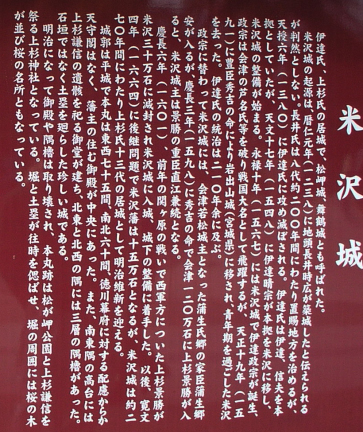 米沢城
伊達氏、上杉氏の居城で、松岬城、舞鶴城とも呼ばれた。
米沢城の起源は、暦仁元年（一二三八）に地頭長井時広が築城したと伝えられる
が判然としない。長井氏は八代約一五〇年間にわたり置賜地方を治めるが、
天授六年（一三八〇）、伊達氏に攻め滅ぼされる。伊達氏は伊達、信夫を本
拠としていたが、天文十七年（一五四八）に伊達晴宗が本拠を米沢に移し、
米沢城の整備が始まる。永禄十年（一五六七）には米沢城で伊達政宗が誕生、
政宗は会津の芦名氏等を破り戦国大名として飛躍するが、天正十九年（一五
九一）に豊臣秀吉の命により岩出山城（宮城県）に移され、青年期を過ごした米沢
を去った。伊達氏の統治は二一〇年余に及ぶ。
政宗に替わって米沢城には、会津若松城主となった蒲生氏郷の家臣蒲生郷
安が入るが、慶長三年（一五九八）に秀吉の命で会津一二〇万石に上杉景勝が入
ると、米沢城主は景勝の重臣直江兼続となる。
慶長六年（一六〇一）、前年の関ヶ原の戦いで西軍方についた上杉景勝が
米沢三十万石に減封され米沢城に入城、城下の整備に着手した。以後、寛文
四年（一六六四）に後継問題で米沢藩は十五万石となるが、米沢城は約二
七〇年間にわたり上杉氏十三代の居城として明治維新を迎える。
城郭は平城で本丸は東西七十五間、南北六十間、徳川幕府に対する配慮からか
天守閣はなく、藩主の住む御殿が中央にあった。また、南東隅の高台には
上杉謙信の遺骸を祀る御堂が建ち、北東と北西の隅には三層の隅櫓があった。
石垣ではなく土塁を廻らした珍しい城である。
明治になって御殿や隅櫓は取り壊され、本丸跡は松が岬公園と上杉謙信を
祭る上杉神社となっている。堀と土塁が往時を偲ばせ、堀の周囲には桜の木
が並び桜の名所ともなっている。